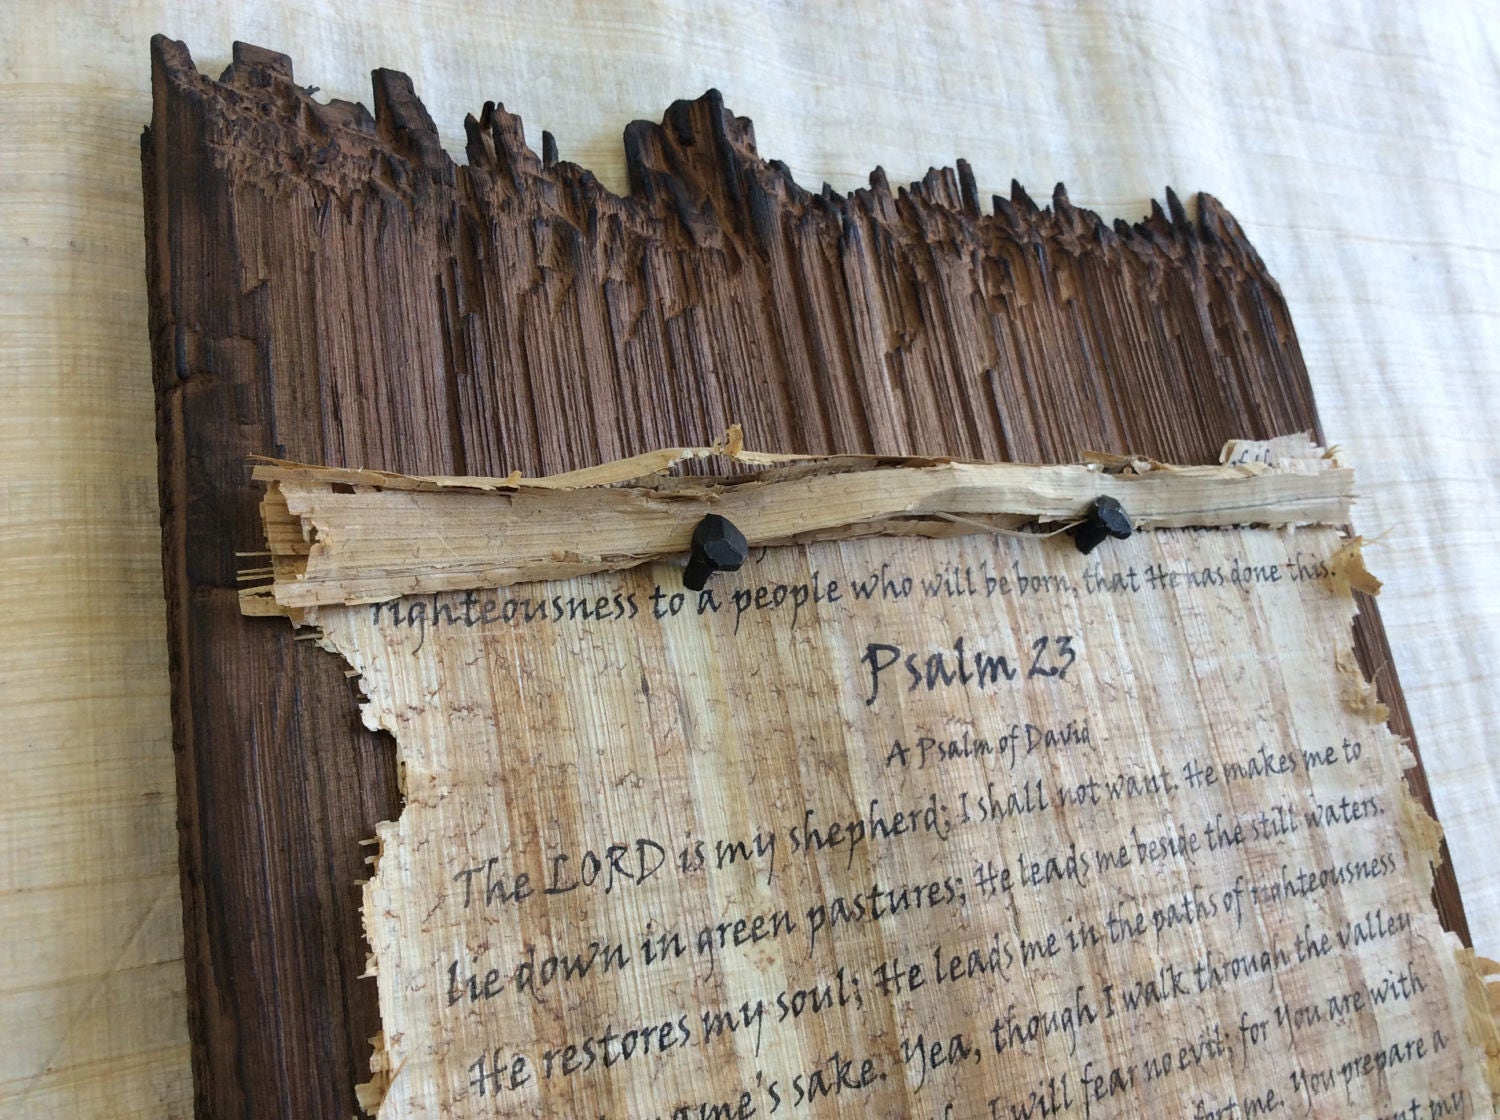 of
righteousness to a people who will be born, that He has done this.
Psalm 23
A Psalm of David
The LORD is my shepherd; I shall not want. He makes me to
lie down in green pastures; He leads me beside the still waters.
He restores my soul; He leads me in the paths of righteousness
name's sake. Yea, though I walk through the valley
I will fear no evil; for You are with
me. You prepare a
my